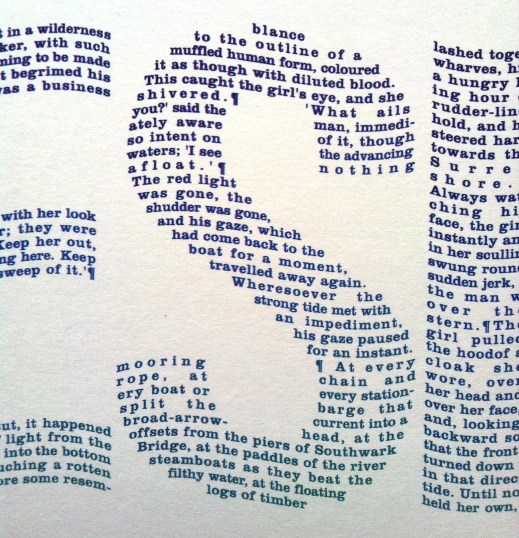 t in a wilderness
ker, with such
ming to be made
t begrimed his
was a business
with her look
r; they were
Keep her out,
ng here. Keep
sweep of it.'¶
out, it happened
light from the
into the bottom
uching a rotten
ore some resem-
blance
to the outline of a
muffled human form, coloured
it as though with diluted blood.
This caught the girl's eye, and she
shivered.¶ 'What ails
you?' said the man, immedi-
ately aware of it, though
so intent on the advancing
waters; 'I see nothing
afloat.'¶
The red light
was gone, the
shudder was gone,
and his gaze, which
had come back to the
boat for a moment,
travelled away again.
Wheresoever the
strong tide met with
an impediment,
his gaze paused
for an instant.
mooring ¶ At every
rope, at chain and
ery boat or every station-
split the barge that
broad-arrow- current into a
offsets from the piers of Southwark head, at the
Bridge, at the paddles of the river
steamboats as they beat the
filthy water, at the floating
logs of timber
lashed toge
wharves, hi
a hungry l
ing hour
rudder-lin
hold, and h
steered har
towards th
Surre
shore.
Always wat
ching hi
face, the gir
instantly an
in her scullin
swung roun
sudden jerk,
the man w
over the
stern.¶The
girl pulled
the hoodof a
cloak she
wore, over
her head and
over her face,
and, looking
backward so
that the front
turned down
in that direc
tide. Until no
held her own,